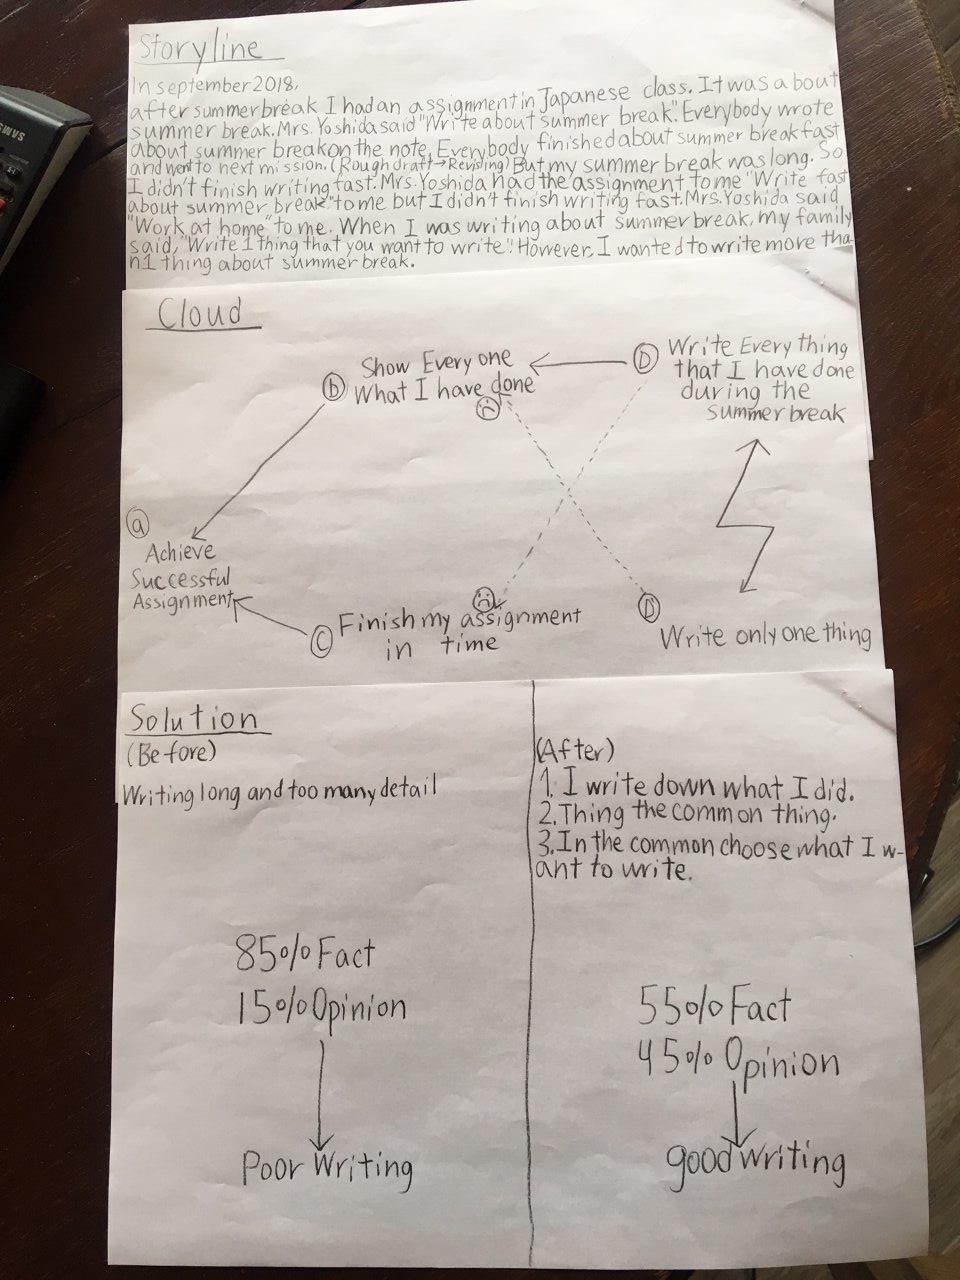 Storyline
In september 2018,
after summer break I had an assignment in Japanese class. It was a bout
summer break. Mrs. Yoshida said "Write about summer break". Everybody wrote
about summer break on the note. Everybody finished about summer break fast
and went to next mission. (Rough draft → Revising) But my summer break was long. So
I didn't finish writing fast. Mrs. Yoshida had the assignment to me "Write fast
about summer break" to me but I didn't finish writing fast. Mrs. Yoshida said
"Work at home" to me. When I was writing about summer break, my family
said, "Write 1 thing that you want to write". However, I wanted to write more tha-
n 1 thing about summer break.
Cloud
b Show Every one
What I have done
D Write Every thing
that I have done
during the
summer break
a
Achieve
Successful
Assignment
C Finish my assignment
in time
D'
Write only one thing
Solution
(Before)
Writing long and too many detail
85% Fact
15% Opinion
Poor Writing
(After)
1. I write down what I did.
2. Thing the common thing.
3. In the common choose what I w-
ant to write.
55% Fact
45% Opinion
good writing
SAMS